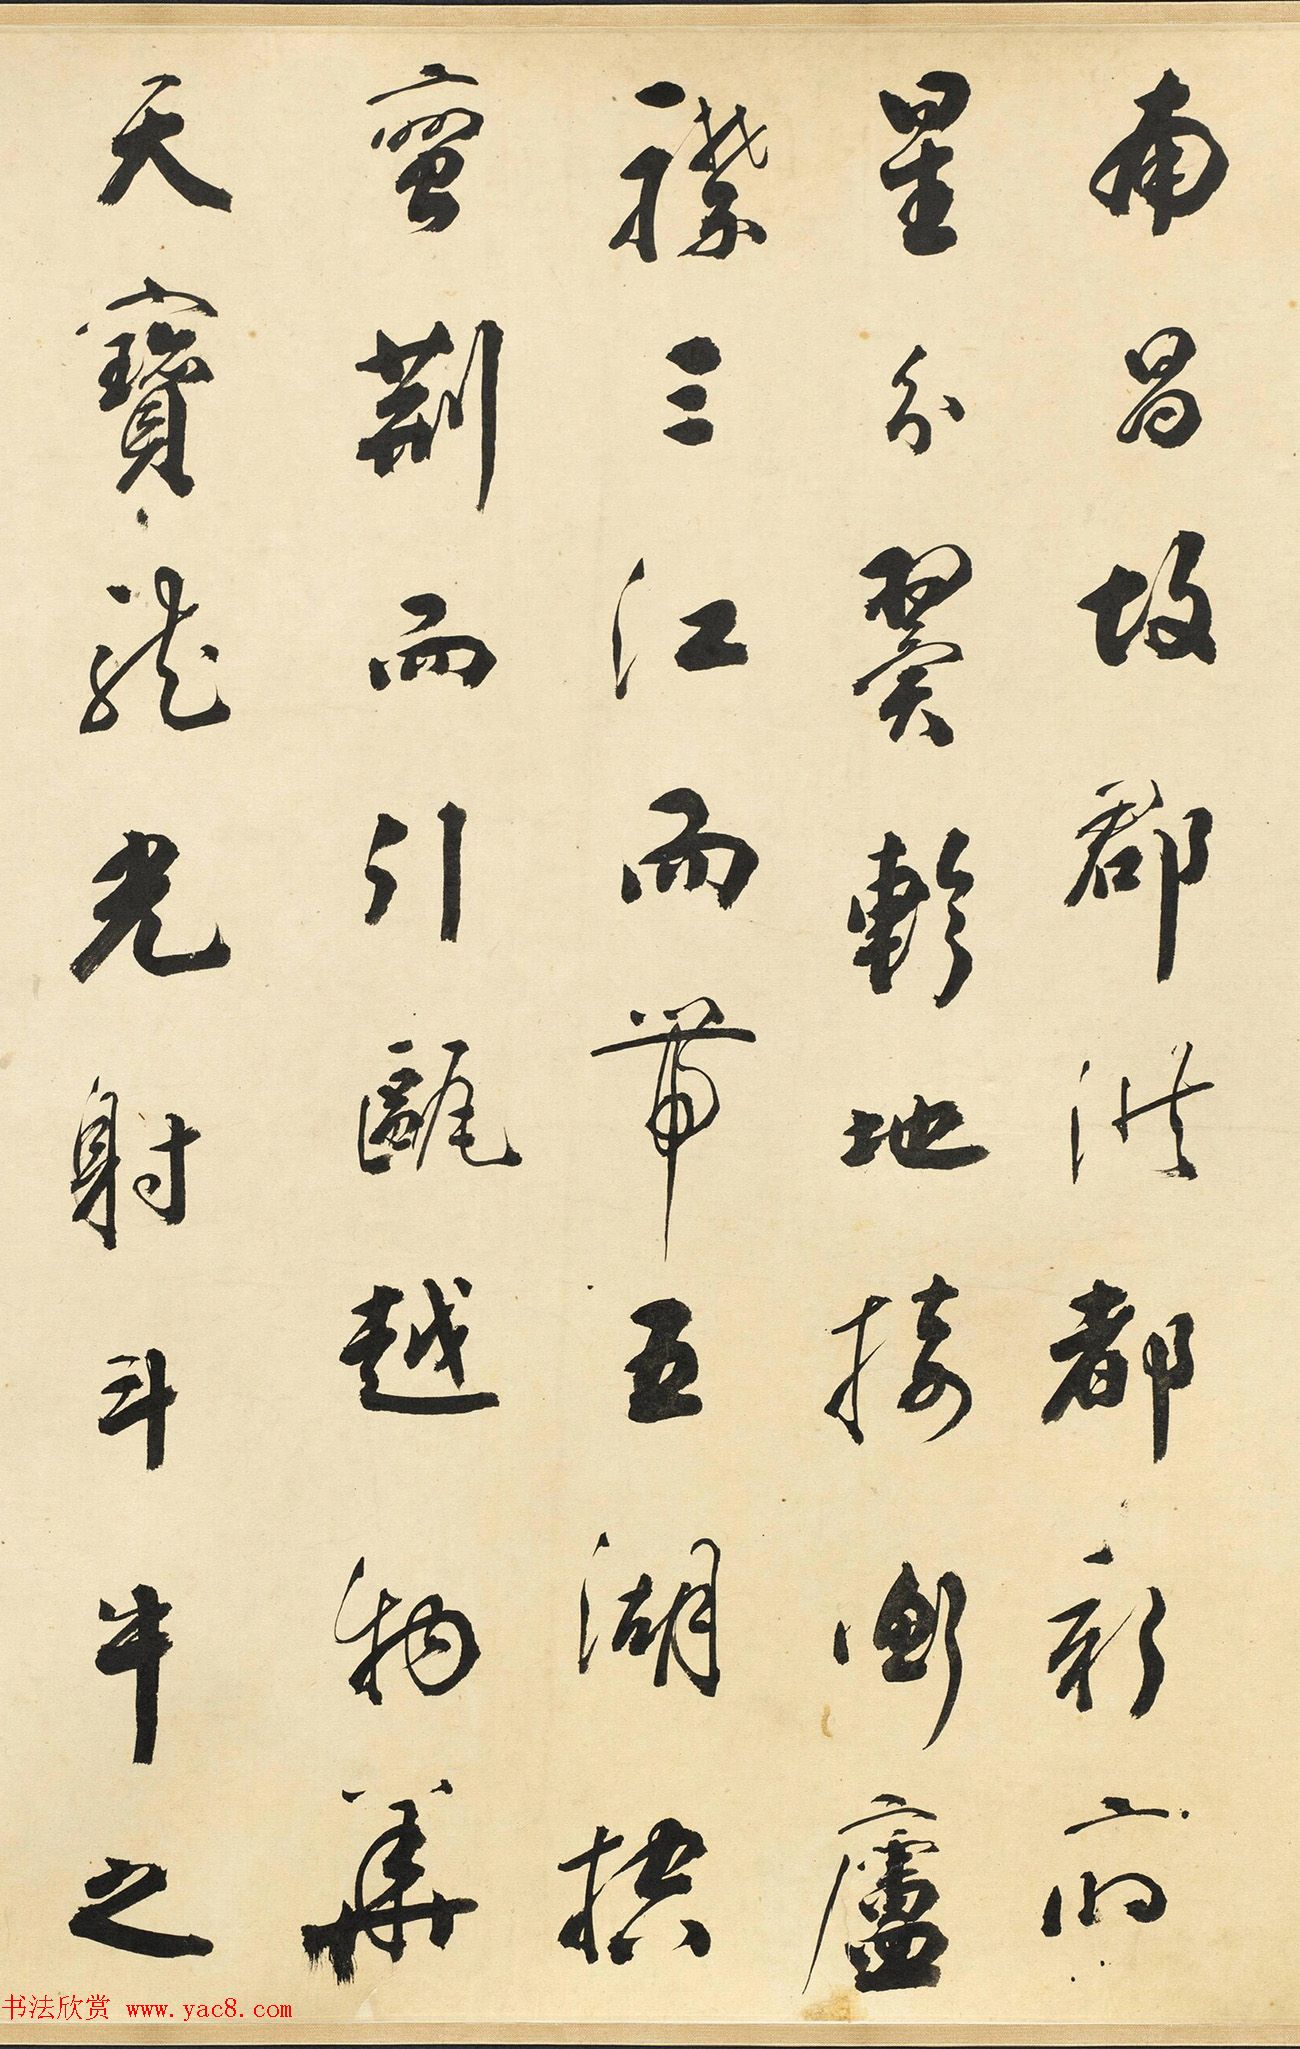 南昌故郡洪都新府
星分翼軫地接衡廬
襟三江而帶五湖控
蠻荊而引甌越物華
天寶龍光射斗牛之
书法欣赏 www.yac8.com